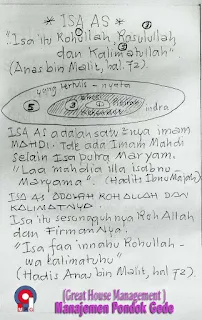 * ISA AS *
"Isa itu Rohullah, Rasulullah
dan Kalimatullah"
(Anas bin Malik, hal. 72)
yang tertulis - nyata
5 3 1
indra
ISA AS adalah satu²nya imam
MAHDI. Tdk ada Imam Mahdi
selain Isa putra Maryam.
"Laa mahdia illa isabnu
Maryama" (Hadits Ibnu Majah)
ISA AS ADALAH ROH ALLAH DAN
KALIMATNYA.
Isa itu sesungguhnya Roh Allah
dan FirmanNya.
"Isa faa innahu Rohullah
wa kalimatuhu"
(Hadis Anas bin Malik, hal 72).
(Great House Management)
Manajemen Pondok Gede